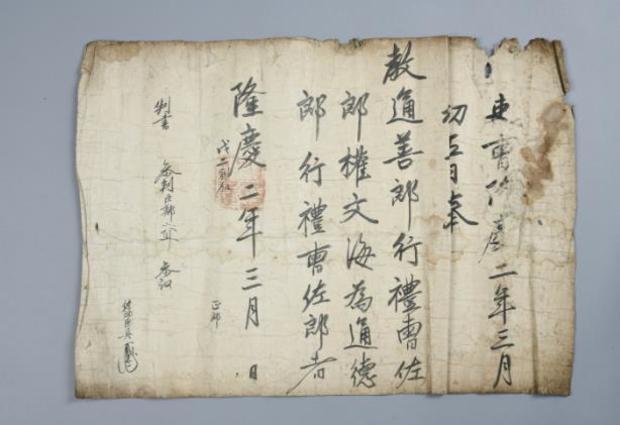 吏曹隆慶二年三月
初五日奉
敎通善郎行禮曹佐
郎權文海為通德
郎行禮曹佐郎者
隆慶二年三月 日
正郎
判書 參判臣 參議
佐郎臣